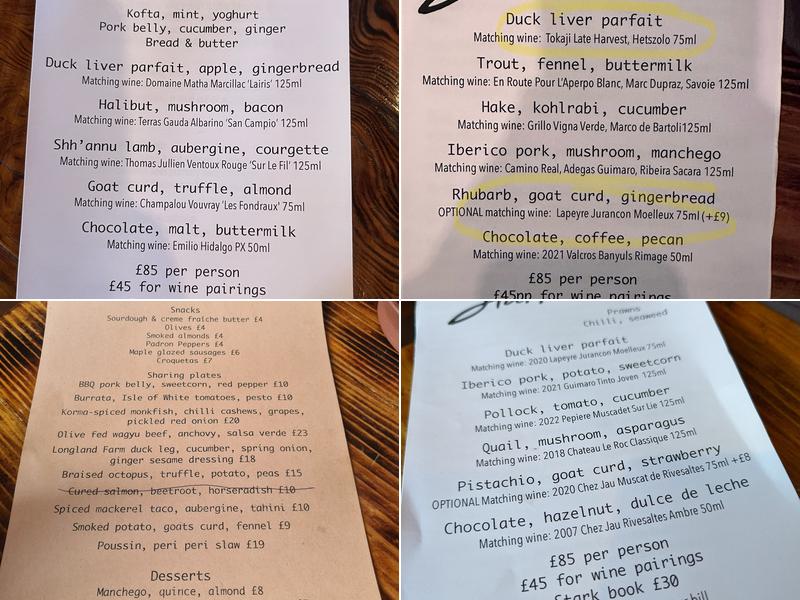 Kofta, mint, yoghurt
Pork belly, cucumber, ginger
Bread & butter
Duck liver parfait, apple, gingerbread
Matching wine: Domaine Matha Marcillac 'Lairis' 125ml
Halibut, mushroom, bacon
Matching wine: Terras Gauda Albarino 'San Campio' 125ml
Shh'annu lamb, aubergine, courgette
Matching wine: Thomas Jullien Ventoux Rouge 'Sur Le Fil' 125ml
Goat curd, truffle, almond
Matching wine: Champalou Vouvray 'Les Fondraux' 75ml
Chocolate, malt, buttermilk
Matching wine: Emilio Hidalgo PX 50ml
£85 per person
£45 for wine pairings
Duck liver parfait
Matching wine: Tokaji Late Harvest, Hetszolo 75ml
Trout, fennel, buttermilk
Matching wine: En Route Pour L'Aperpo Blanc, Marc Dupraz, Savoie 125ml
Hake, kohlrabi, cucumber
Matching wine: Grillo Vigna Verde, Marco de Bartoli125ml
Iberico pork, mushroom, manchego
Matching wine: Camino Real, Adegas Guimaro, Ribeira Sacara 125ml
Rhubarb, goat curd, gingerbread
OPTIONAL matching wine: Lapeyre Jurancon Moelleux 75ml (+£9)
Chocolate, coffee, pecan
Matching wine: 2021 Valcros Banyuls Rimage 50ml
£85 per person
£45pp for wine pairings
Snacks
Sourdough & creme fraiche butter £4
Olives £4
Smoked almonds £4
Padron Peppers £4
Maple glazed sausages £6
Croquetas £7
Sharing plates
BBQ pork belly, sweetcorn, red pepper £10
Burrata, Isle of White tomatoes, pesto £10
Korma-spiced monkfish, chilli cashews, grapes,
pickled red onion £20
Olive fed wagyu beef, anchovy, salsa verde £23
Longland Farm duck leg, cucumber, spring onion,
ginger sesame dressing £18
Braised octopus, truffle, potato, peas £15
Cured salmon, beetroot, horseradish £10
Spiced mackerel taco, aubergine, tahini £10
Smoked potato, goats curd, fennel £9
Poussin, peri peri slaw £19
Desserts
Manchego, quince, almond £8
Prawns
Chilli, seaweed
Duck liver parfait
Matching wine: 2020 Lapeyre Jurancon Moelleux 75ml
Iberico pork, potato, sweetcorn
Matching wine: 2021 Guimaro Tinto Joven 125ml
Pollock, tomato, cucumber
Matching wine: 2022 Pepiere Muscadet Sur Lie 125ml
Quail, mushroom, asparagus
Matching wine: 2018 Chateau Le Roc Classique 125ml
Pistachio, goat curd, strawberry
OPTIONAL Matching wine: 2020 Chez Jau Muscat de Rivesaltes 75ml +£8
Chocolate, hazelnut, dulce de leche
Matching wine: 2007 Chez Jau Rivesaltes Ambre 50ml
£85 per person
£45 for wine pairings
Stark book £30